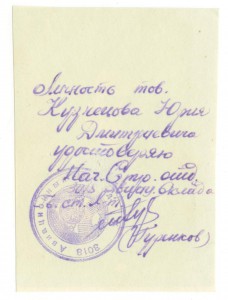 Личность тов.
Кузнецова Юрия
Дмитриевича
удостоверяю
Нач. Стр. отд.
склада
ст. л-т.
(Пуриков)
8018